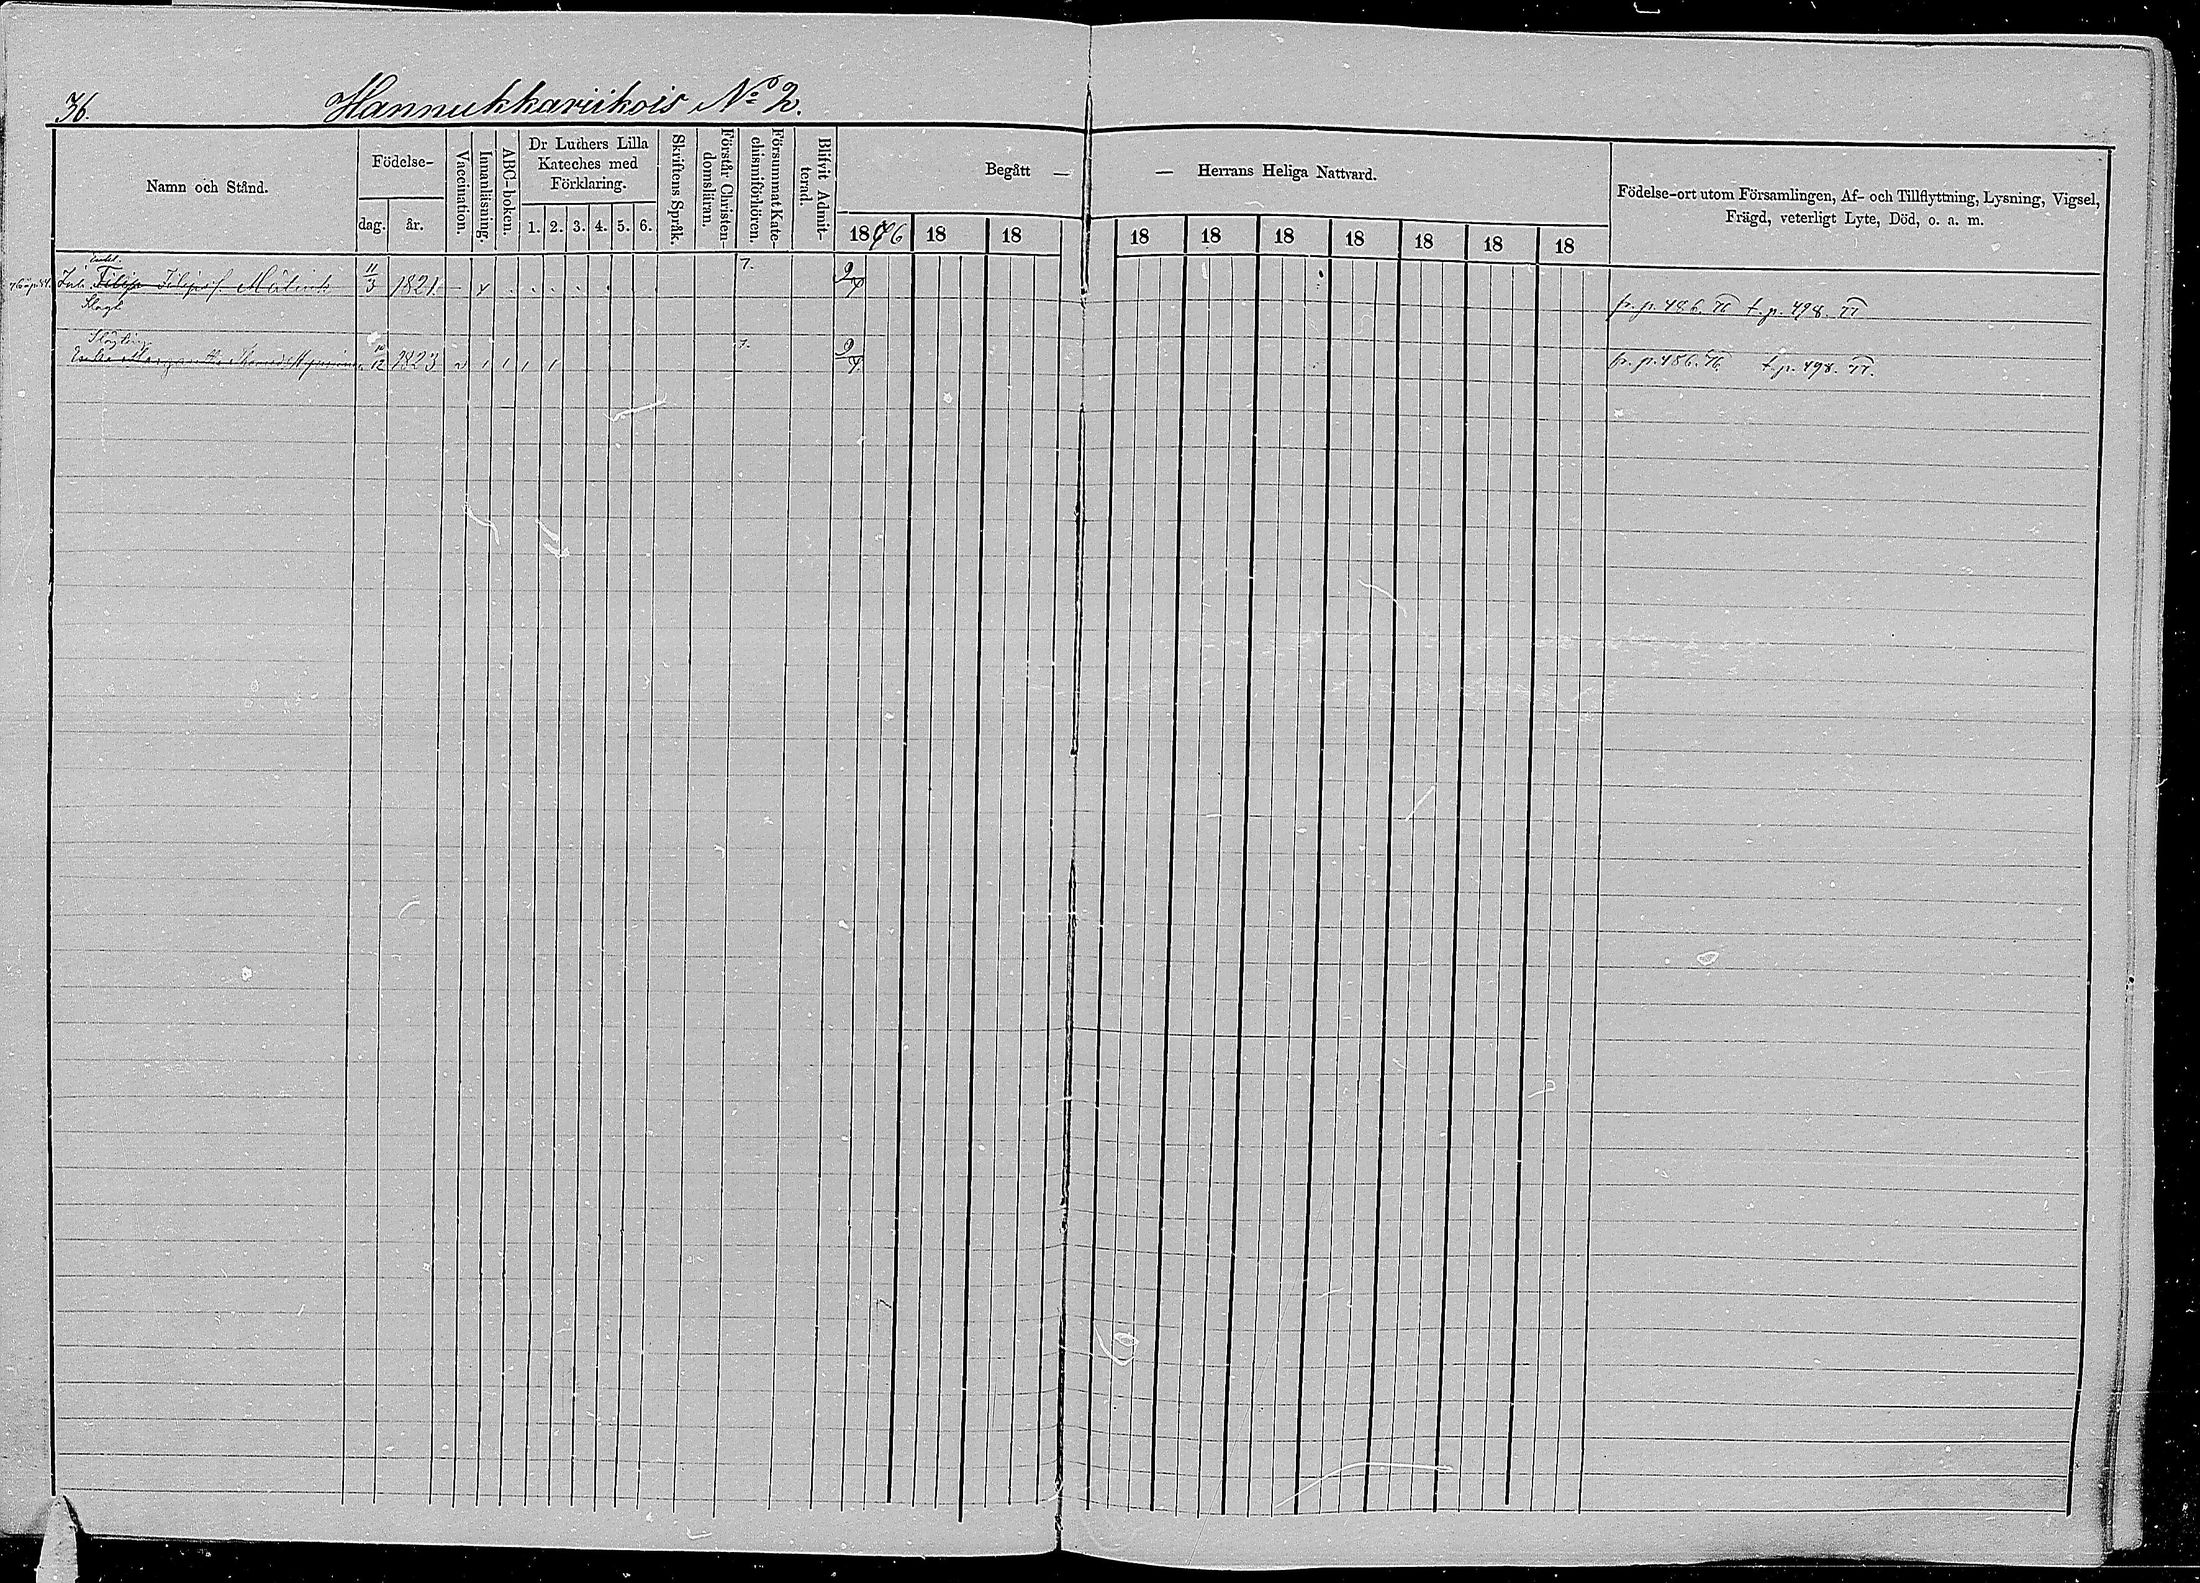 36.
Hannukkariikois No 2.
Namn och Stånd.
Födelse-
dag.
år.
Vaccination.
Innanläsning.
ABC-boken.
Dr Luthers Lilla
Kateches med
Förklaring.
1. 2. 3. 4. 5. 6.
Skriftens Språk.
Förstår Christen-
domsläran.
Försummat Kate-
chismiförhören.
Blifvit Admit-
terad.
Begått —
— Herrans Heliga Nattvard.
1876 18 18 18 18 18 18 18 18 18
Födelse-ort utom Församlingen, Af- och Tillflyttning, Lysning, Vigsel,
Frägd, veterligt Lyte, Död, o. a. m.
Filip Filipsf 11/3 1821 7. 9/7 fr. p. 486. 76 t. p. 498. 77
10/12 1823 7. 9/7 fr. p. 486. 76 t. p. 498. 77.